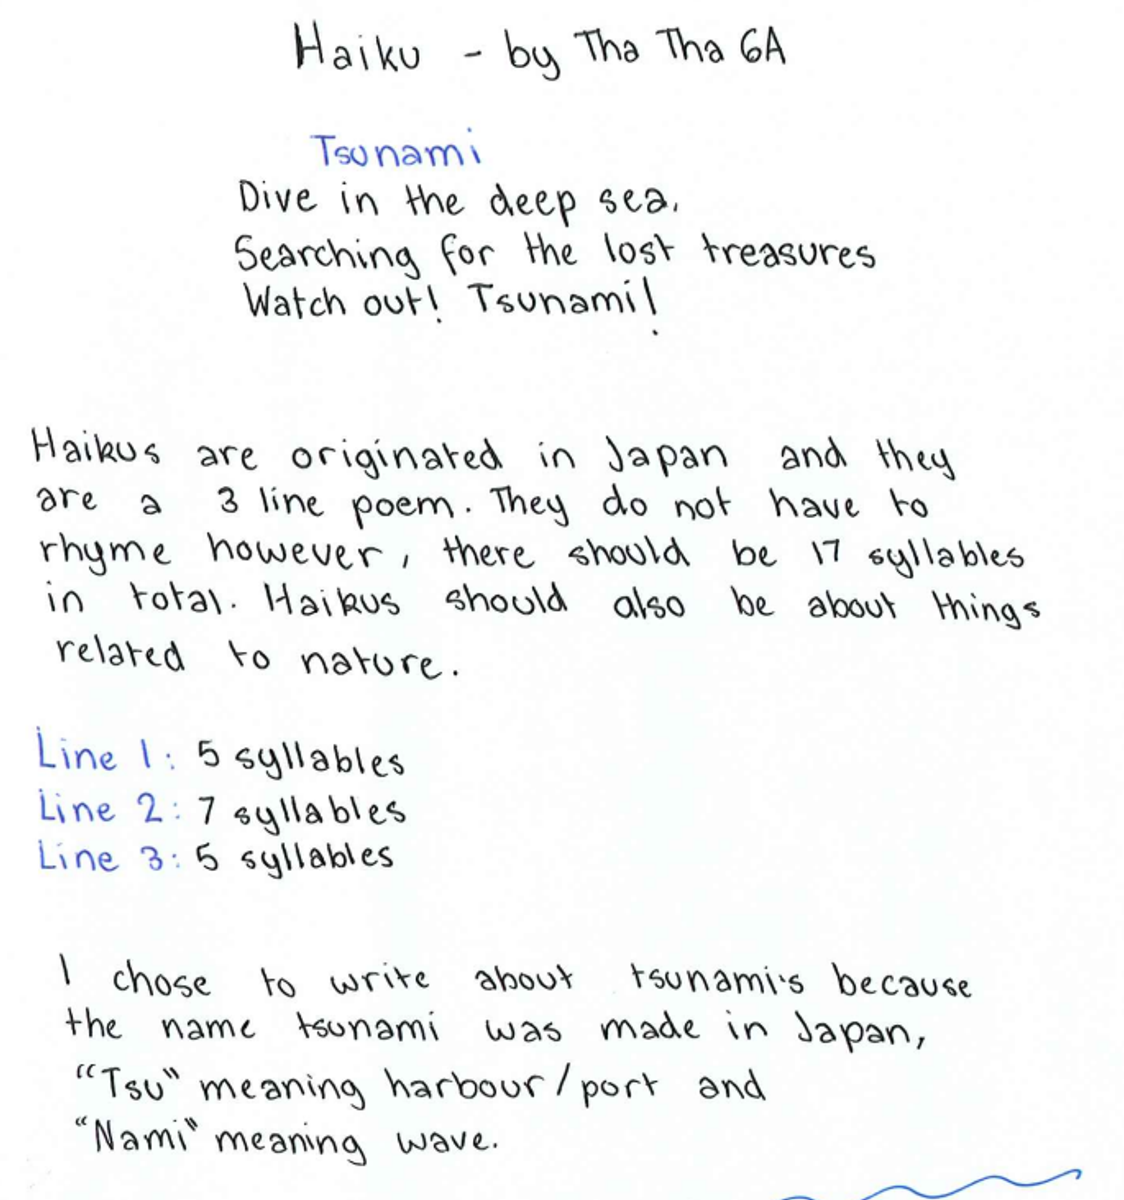 Haiku - by Tha Tha 6A
Tsunami
Dive in the deep sea.
Searching for the lost treasures
Watch out! Tsunami!
Haikus are originated in Japan and they
are a 3 line poem. They do not have to
rhyme however, there should be 17 syllables
in total. Haikus should also be about things
related to nature.
Line 1: 5 syllables
Line 2: 7 syllables
Line 3: 5 syllables
I chose to write about tsunami's because
the name tsunami was made in Japan,
"Tsu" meaning harbour/port and
"Nami" meaning wave.